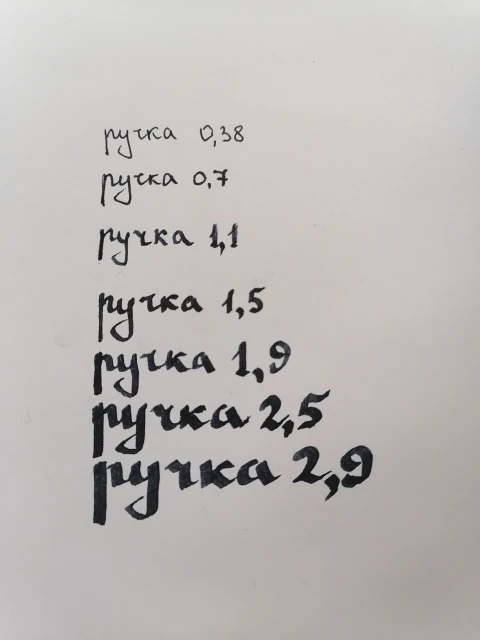 ручка 0,38
ручка 0,7
ручка 1,1
ручка 1,5
ручка 1,9
ручка 2,5
ручка 2,9